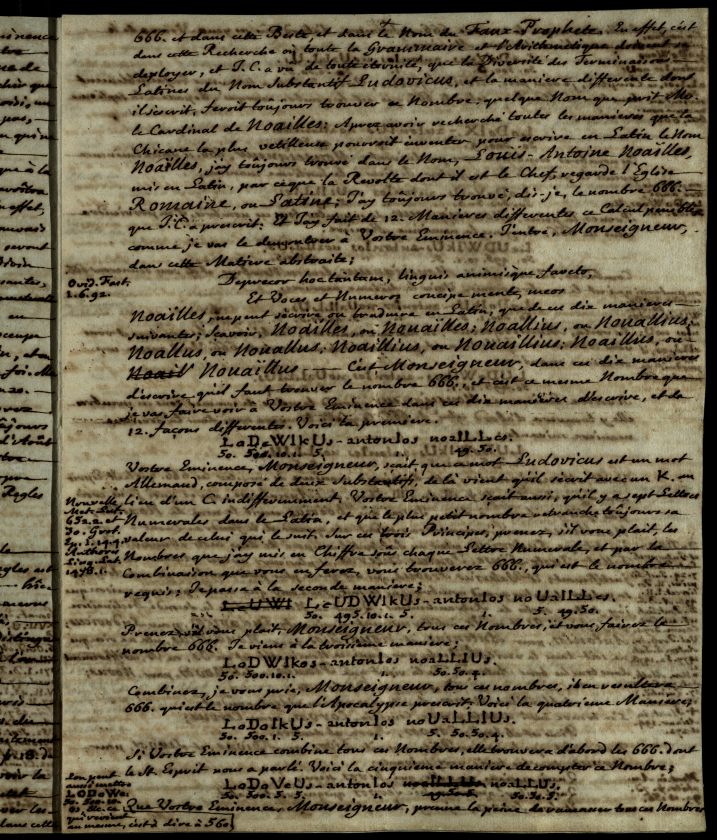 666. et dans cette Beste, et dans le Nom du Faux-Prophéte. En effet, c'est
dans cette Recherche où toute la Grammaire et l'Arithmetique doivent se
deployer, et J.C. a vû de toute éternité, que la Diversité des Terminaisons
Latines du Nom Substantif Ludovicus, et la maniere differente dont
il s'écrit, feroit toûjours trouver ce Nombre; quelque Nom que prit Mr.
le Cardinal de Noailles: Aprez avoir recherché toutes les manieres que la
Chicane la plus vetilleuse pourroit inventer pour escrire en Latin le Nom
Noailles, j'ay toûjours trouvé dans le Nom, Louis-Antoine Noailles,
mis en Latin, par ce que la Revolte dont il est le Chef, regarde l'Eglise
Romaine, ou Latine; J'ay toûjours trouvé, dis-je, le nombre 666.
que J.C. a prescrit: Et j'ay fait de 12. Manieres differentes ce Calcul penible
comme je vas le demontrer à Vostre Eminence. J'entre, Monseigneur,
dans cette Matiere abstraite;
Ovid. Fast.
L. 6. 92.
Deprecor hoc tantum, linguis animisque faveto,
Et Voces, et Numeros concipe mente, meos
Noailles, ne peut s'écrire ou traduire en Latin, que de ces dix manieres
suivantes; scavoir, Noailles, ou Nouailles; Noallius, ou Nouallius;
Noallus, ou Nouallus; Noaillius, ou Nouaillius; Noaillus, ou
Nouaillus — C'est Monseigneur, dans ces dix manieres
d'escrire qu'il faut trouver le nombre 666. et c'est ce mesme Nombre que
je vas faire voir à Vostre Eminence dans ces dix manieres d'escrire, et de
12. façons differentes. Voici la premiere.
LoDoWIkUs-antonIos noaILLes.
50. 500. 10. 1. 5. 1. 49. 50.
Vostre Eminence, Monseigneur, scait que ce mot Ludovicus est un mot
Allemand, composé de deux Substantifs, de là vient qu'il s'écrit avec un K. au
lieu d'un C. indifferemment. Vostre Eminence scait aussi, qu'il y a sept Lettres
Numerales dans le Latin, et que le plus petit nombre retranche toûjours sa
valeur de celui qui le suit. Sur ces trois Principes, prenez, s'il vous plait, les
Nombres que j'ay mis en Chiffre sous chaque Lettre Numerale, et par la
Combinaison que vous en ferez, vous trouverez 666., qui est le nombre
requis: Je passe à la seconde maniere;
Nouvelle
Met. Lat.
LeUWI LeUDWIkUs-antonIos noUaILLes.
50. 495. 10. 1. 5. 1. 5. 49. 50.
Prenez, s'il vous plait, Monseigneur, tous ces Nombres, et vous fairez le
nombre 666. Je viens à la troisiéme maniere;
LoDWIkos-antonIos noaLLIUs.
50. 500. 10. 1. 1. 50. 50. 4.
Combinez, je vous prie, Monseigneur, tous ces nombres, il en resultera
666. qui est le nombre que l'Apocalypse prescrit. Voici la quatriéme Maniere;
LoDoIkUs-antonIos noUaLLIUs.
50. 500. 1. 5. 1. 5. 50. 50. 4.
Si Vostre Eminence combine tous ces Nombres, elle trouvera d'abord les 666. dont
le St. Esprit nous a parlé. Voici la cinquiéme maniere de compter ce Nombre;
LoDoVeUs-antonIos noaLLUs.
50. 500. 5. 5. 1. 50. 50. 5.
Que Vostre Eminence, Monseigneur, prenne la peine de ramasser tous ces Nombres
L'on peut
aussi mettre
au mesme, c'est à dire à 560.